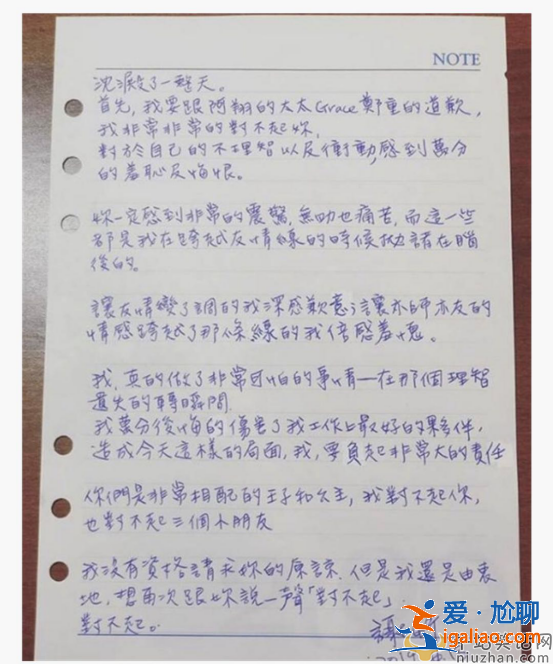 NOTE
沈澱了一整天。
首先,我要跟阿翔的太太Grace鄭重的道歉,
我非常非常的對不起妳,
對於自己的不理智以及衝動,感到萬分
的羞恥及悔恨。
妳一定感到非常的震驚,無助也痛苦,而這一些
都是我在跨越友情線的時候拋諸在腦
後的。
讓友情變了調的我深感歉意;讓亦師亦友的
情感跨越了那條線的我倍感羞愧。
我,真的做了非常可怕的事情—在那個理智
遺失的轉瞬間.
我萬分後悔的傷害了我工作上最好的夥伴,
造成今天這樣的局面,我,要負起非常大的責任
你們是非常相配的王子和公主,我對不起你,
也對不起三個小朋友
我沒有資格請求妳的原諒.但是我還是由衷
地,想再次跟妳說一聲「對不起」
對不起。
謝
2019
爱·尬聊
igaliao.com
niuzhan.com